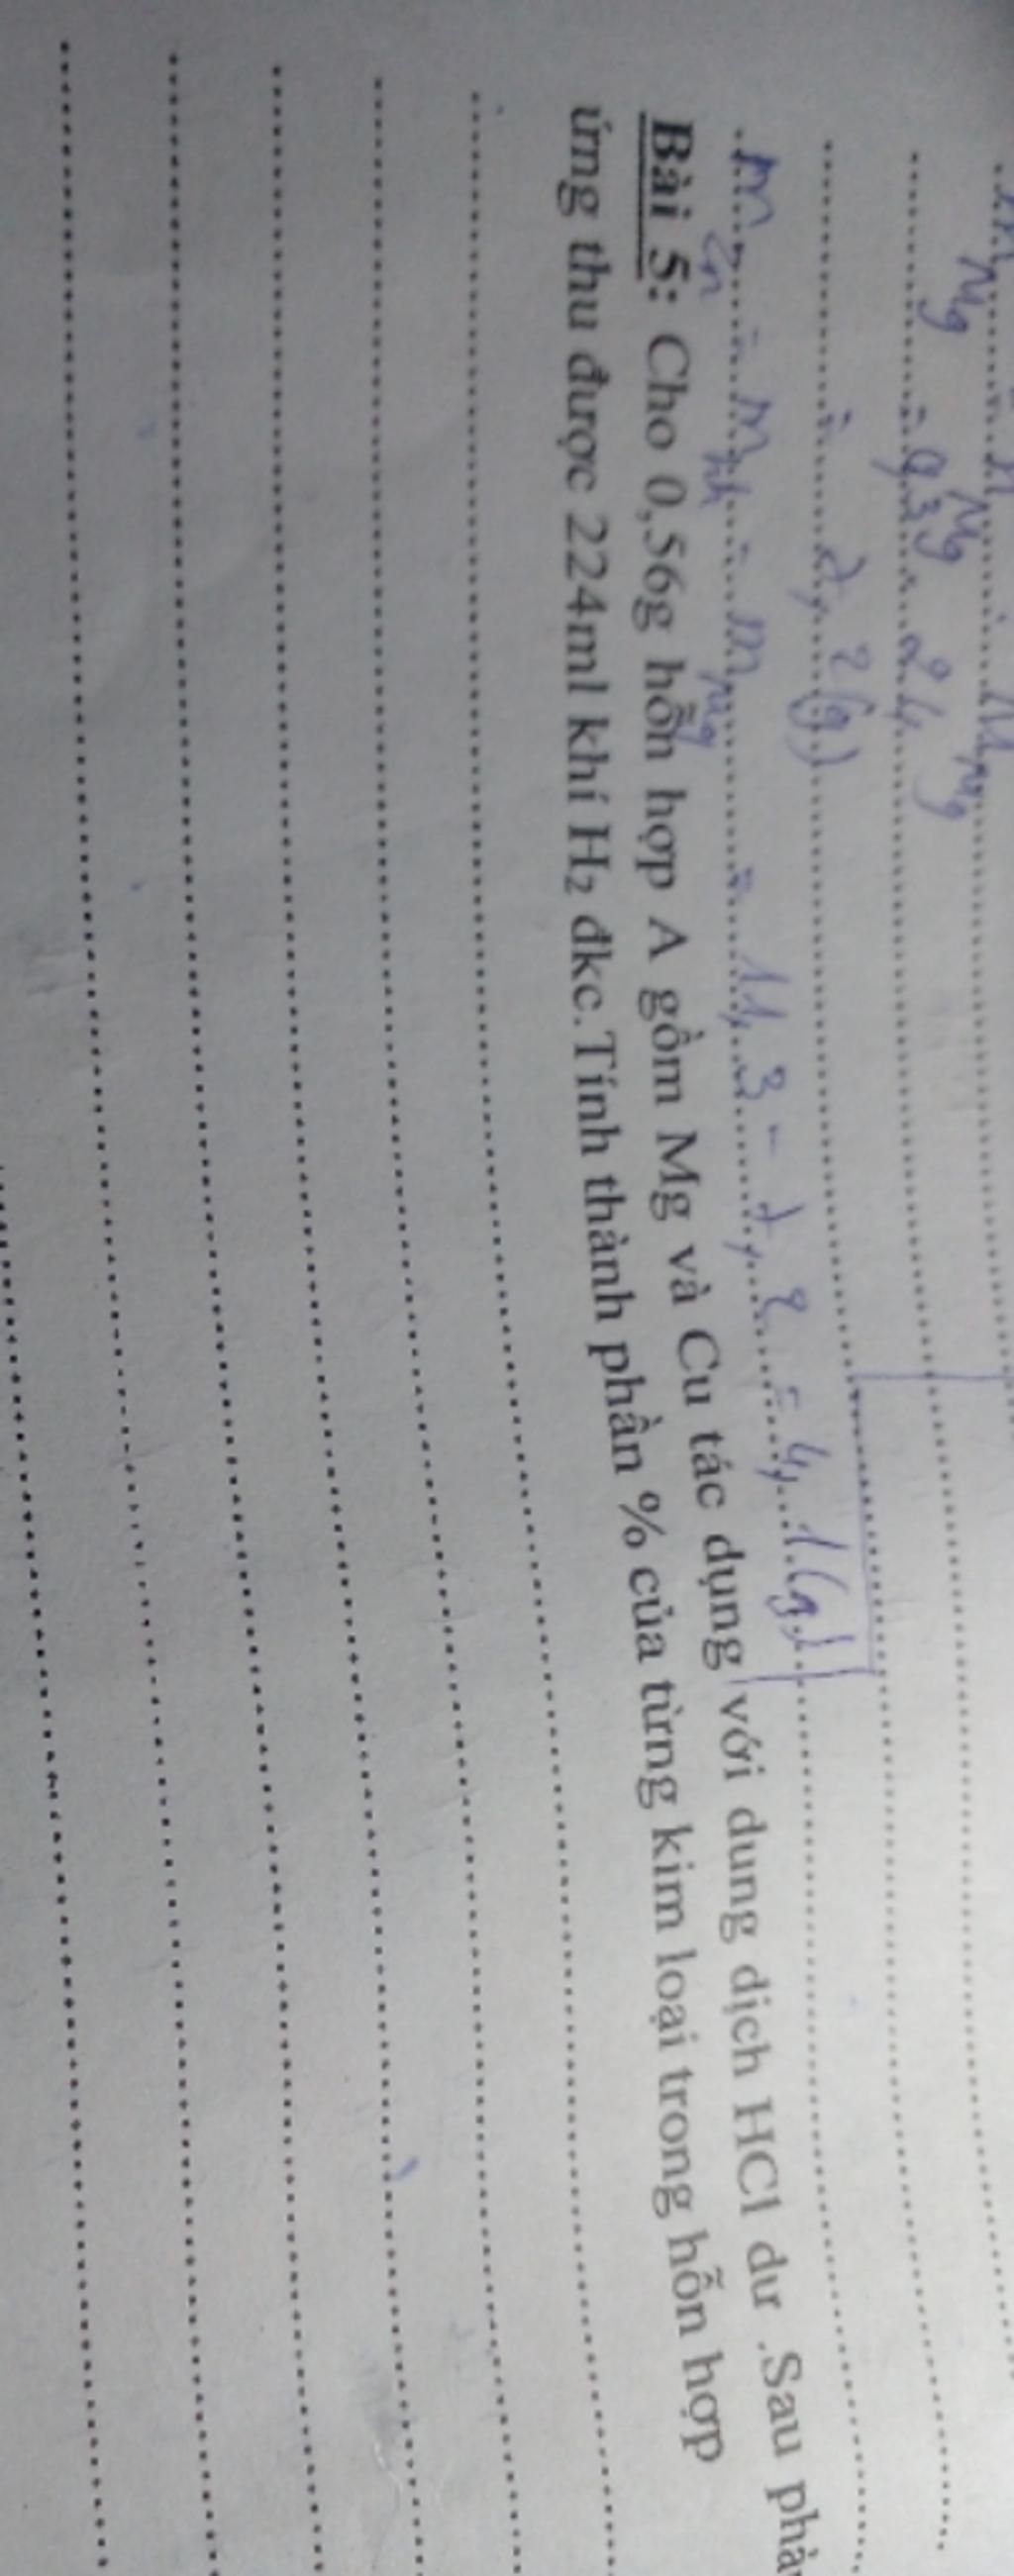 Mg = 0,3 . 24
= 7,2 (g)
m Zn = m hh - m Mg = 11,3 - 7,2 = 4,1 (g)
Bài 5: Cho 0,56g hỗn hợp A gồm Mg và Cu tác dụng với dung dịch HCl dư .Sau
ứng thu được 224ml khí H₂ đkc.Tính thành phần % của từng kim loại trong hỗn hợp